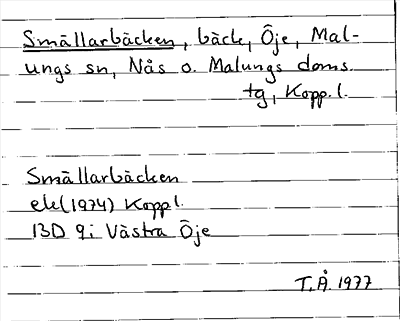 Smällarbäcken, bäck, Öje, Mal-
ungs sn, Nås o. Malungs doms.
tg, Kopp. l.
Smällarbäcken
ek (1974) Kopp l.
13D 9i Västra Öje
T.Å. 1977